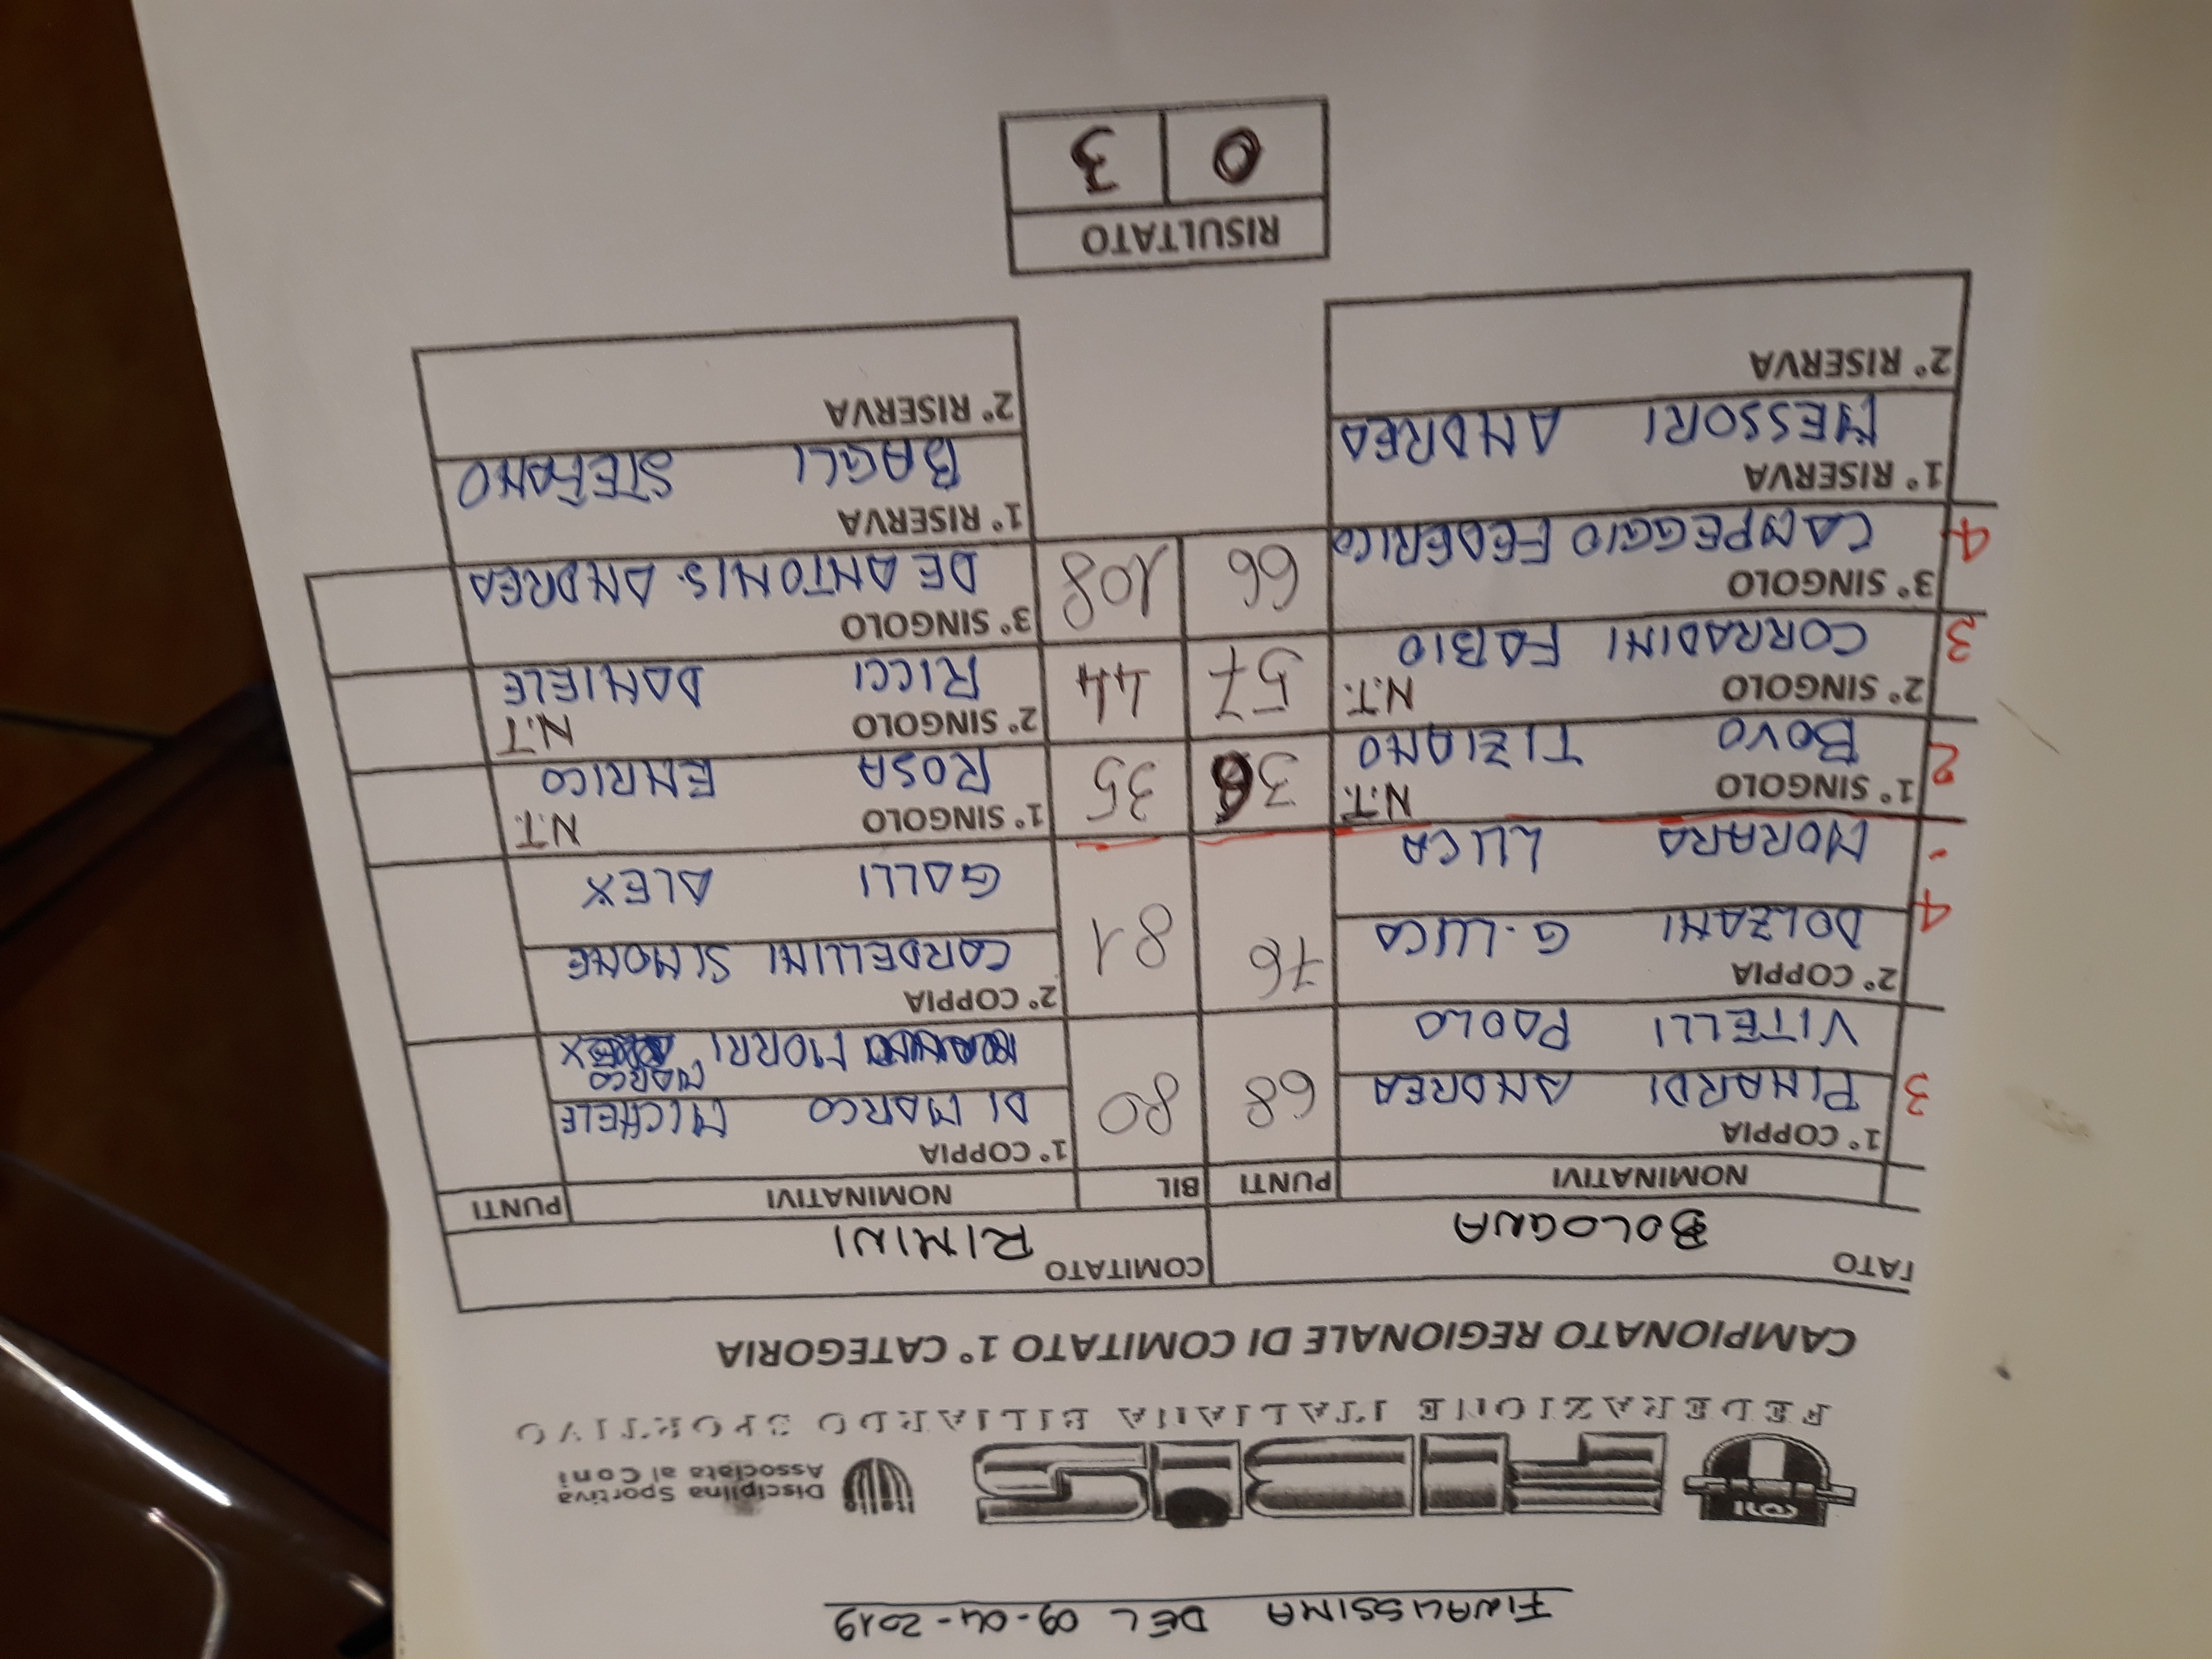 FINALISSIMA DEL 09-04-2019
CONI
FIBIS
Italia
Disciplina Sportiva
Associata al Coni
FEDERAZIONE ITALIANA BILIARDO SPORTIVO
CAMPIONATO REGIONALE DI COMITATO 1° CATEGORIA
TATO BOLOGNA COMITATO RIMINI
NOMINATIVI PUNTI BIL NOMINATIVI PUNTI
1° COPPIA 1° COPPIA
3 PINARDI ANDREA 68 80 DI MARCO MICHELE
VITELLI PAOLO MORRI MARCO
2° COPPIA 2° COPPIA
4 DOLZANI G.LUCA 76 81 CARDELLINI SIMONE
- MORARA LUCA GALLI ALEX
1° SINGOLO N.T. 1° SINGOLO N.T.
2 BOVO TIZIANO 36 35 ROSA ENRICO
2° SINGOLO N.T. 2° SINGOLO N.T
3 CORRADINI FABIO 57 44 RICCI DANIELE
3° SINGOLO 3° SINGOLO
4 CAMPEGGIO FEDERICO 66 108 DE ANTONIS ANDREA
1° RISERVA 1° RISERVA
MESSORI ANDREA BAGLI STEFANO
2° RISERVA 2° RISERVA
RISULTATO
0 3